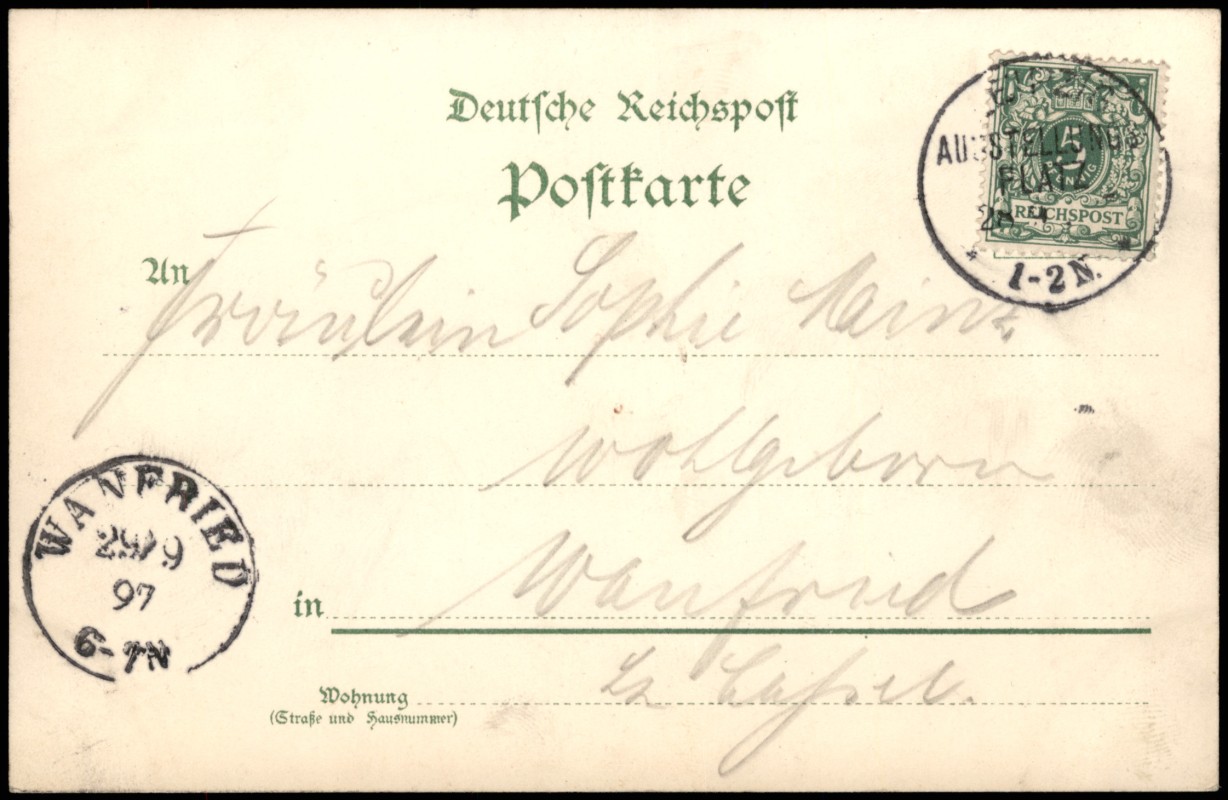 Deutsche Reichspost
Postkarte
AUSSTELLUNGS
PLATZ
28
1-2 N.
5
PFENNIG
REICHSPOST
An
Fräulein Sophie Heinz
Wohlgeborn
in Wanfried
Bz Cassel.
Wohnung
(Straße und Hausnummer)
WANFRIED
29/9
97
6-7N